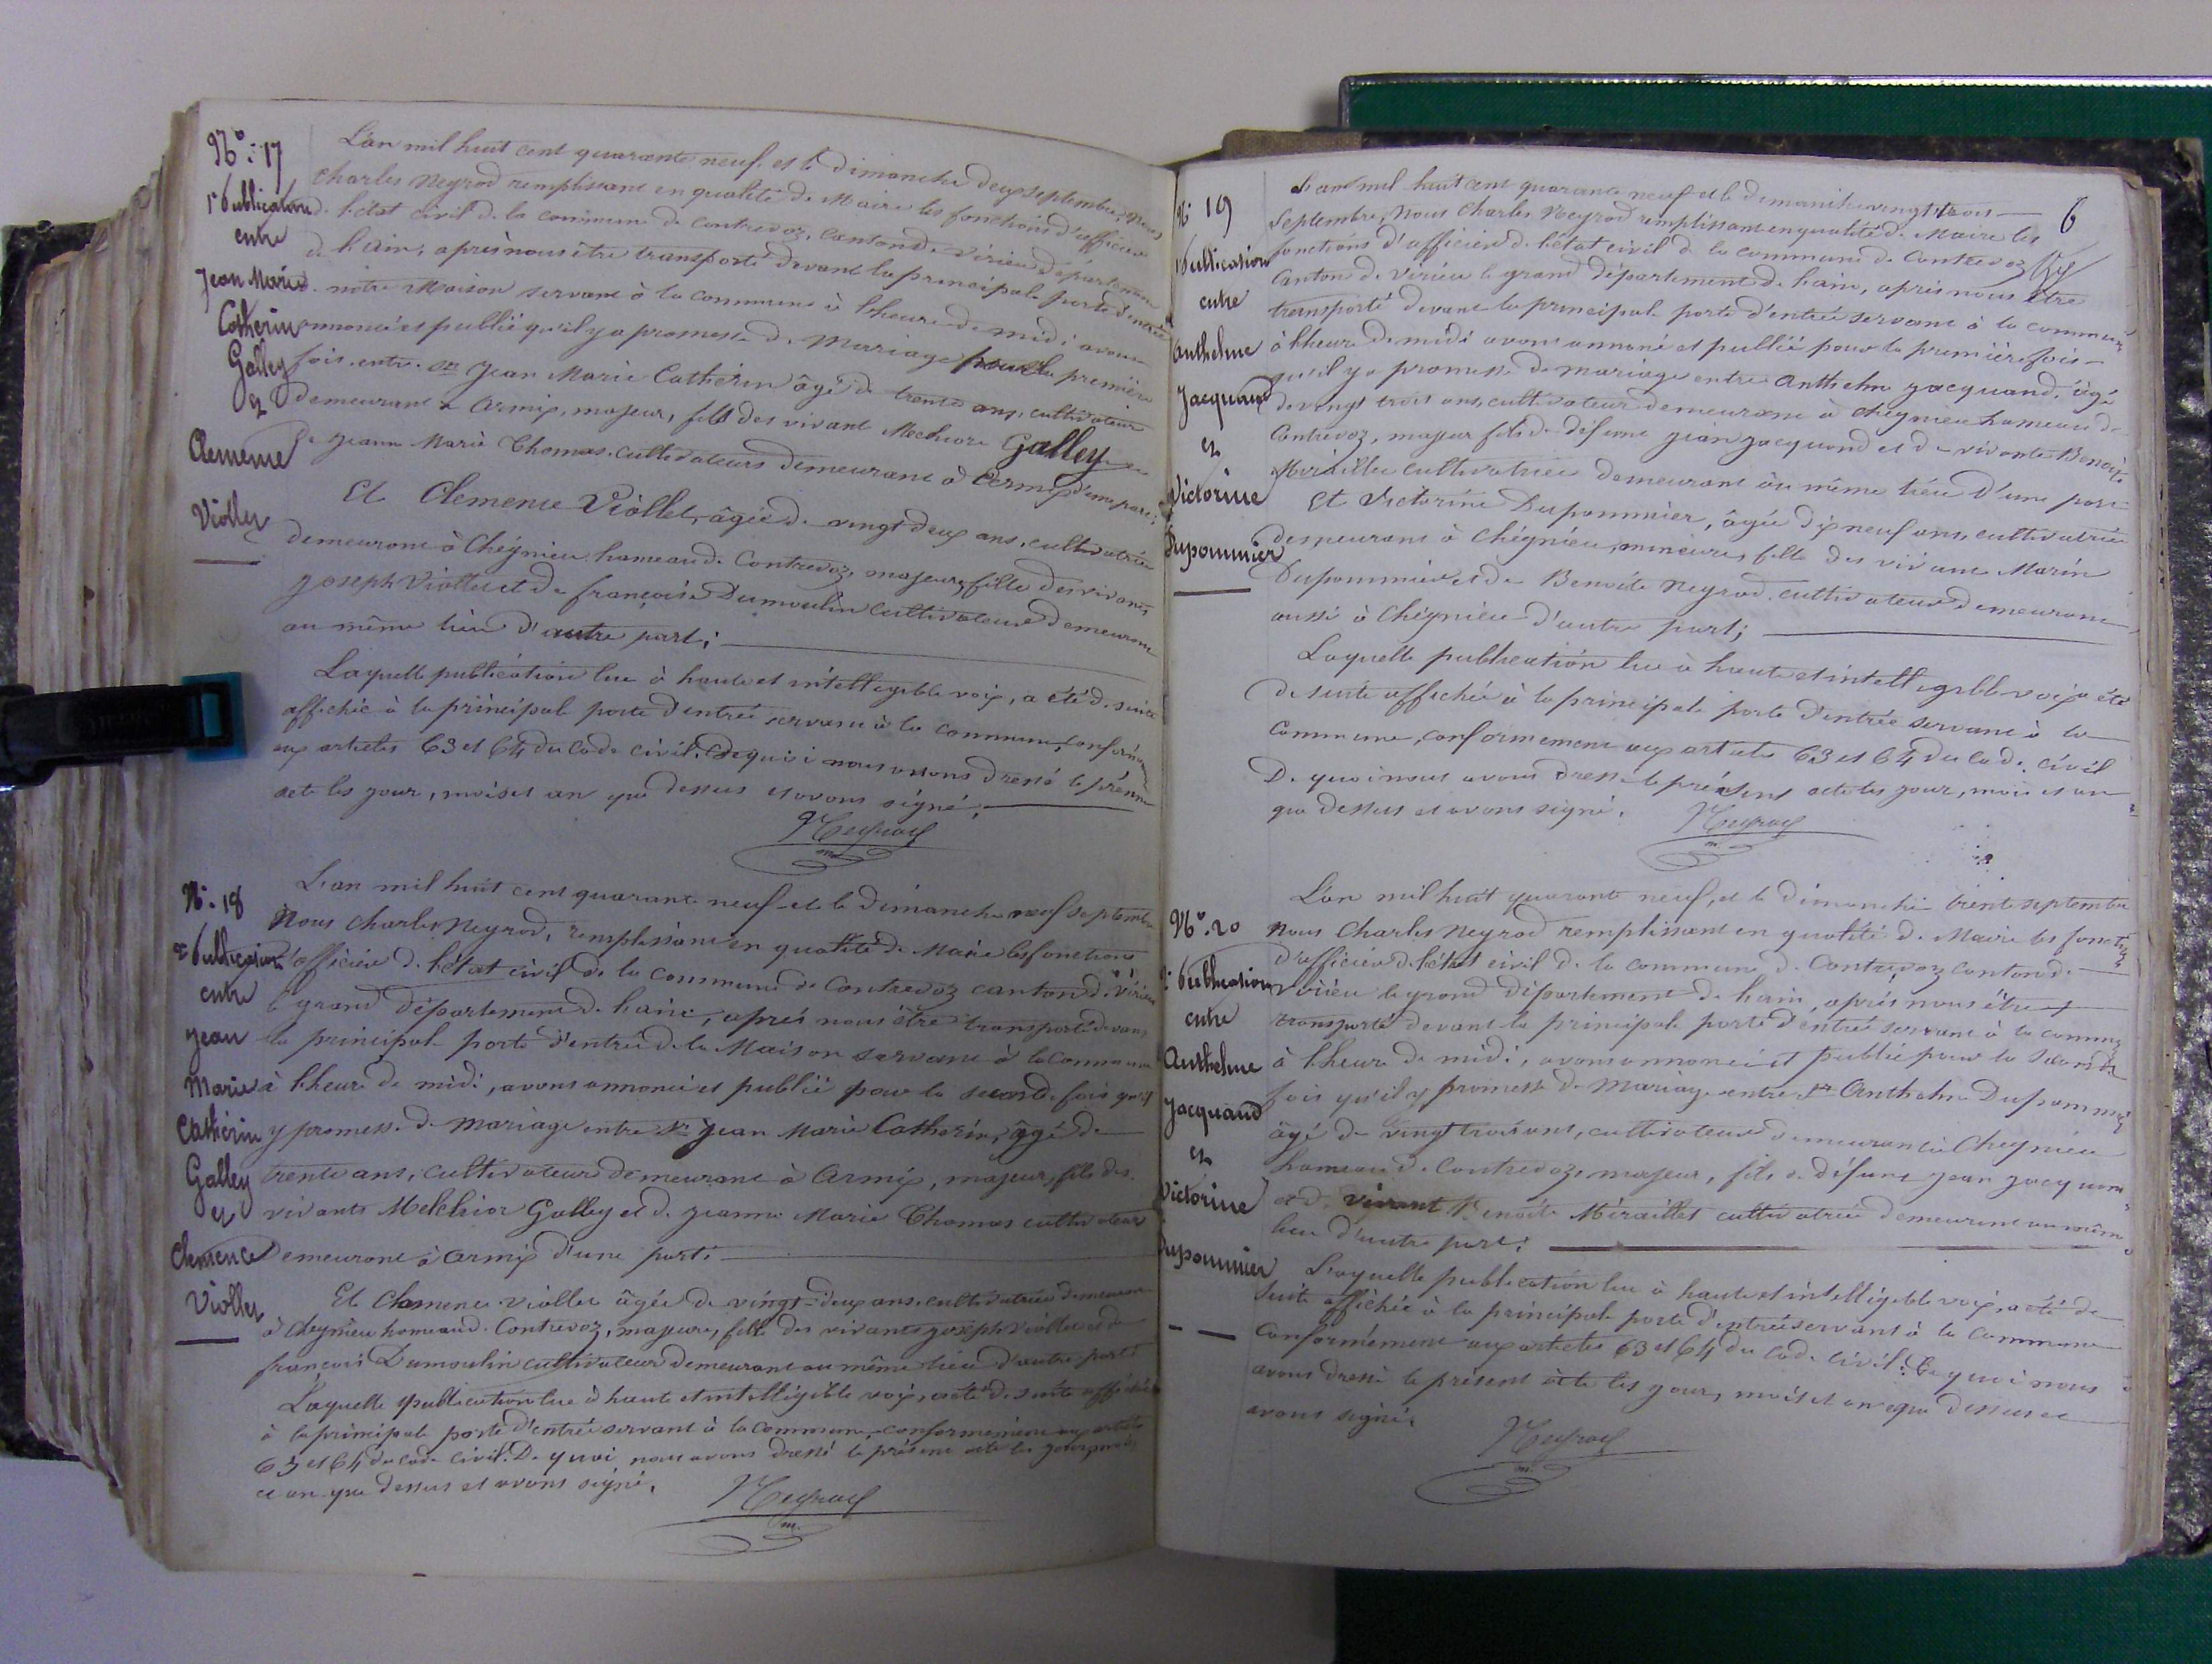 N°: 17
1e Publication
entre
Jean Marie
Catherin
Galley
et
Clemence
Viollet
L'an mil huit cent quarante neuf et le dimanche deux septembre, nous
Charles Neyrod remplissant en qualité de Maire les fonctions d'officier
de l'état civil de la commune de Contrevoz, canton de Virieu département
de l'ain, après nous être transporté devant la principale porte d'entrée
de notre Maison servant à la commune à l'heure de midi avons
annoncé et publié qu'il y a promesse de Mariage pour la première
fois entre Sr Jean Marie Catherin âgé de trente ans, cultivateur
demeurant à Armix, majeur, fils des vivant Mechior Galley
de Jeanne Marie Thomas cultivateurs demeurant à Armix d'une part;
Et Clemence Viollet, âgée de vingt deux ans, cultivatrice
demeurant à Chégnieu hameau de Contrevoz, majeure, fille des vivants
Joseph Viollet et de françoise Dumoulin cultivateurs demeurant
au même lieu d'autre part;
Laquelle publication lue à haute et intelligible voix, a été de suite
affichée à la principale porte d'entrée servant à la commune, conformément
aux articles 63 et 64 du Code civil. De quoi nous avons dressé le présent
acte les jour, mois et an que dessus et avons signé.
Neyrod
m.
N°: 18
2e Publication
entre
Jean
Marie
Catherin
Galley
et
Clemence
Viollet
L'an mil huit cent quarante neuf et le dimanche neuf septembre
Nous Charles Neyrod, remplissant en qualité de Maire les fonctions
d'officier de l'état civil de la commune de Contrevoz canton de Virieu
le grand département de l'ain, après nous être transporté devant
la principale porte d'entrée de la Maison servant à la commune
à l'heure de midi, avons annoncé et publié pour la seconde fois qu'il
y promesse de mariage entre Sr Jean Marie Catherin, âgé de
trente ans, cultivateur demeurant à Armix, majeur, fils des
vivants Melchior Galley et de Jeanne Marie Thomas cultivateurs
demeurant à Armix d'une part.
Et Clemence Viollet âgée de vingt-deux ans, cultivatrice demeurant
à Chegnieu hameau de Contrevoz, majeure, fille des vivants Joseph Viollet et de
françois Dumoulin cultivateurs demeurant au même lieu d'autre part
Laquelle publication lue à haute et intelligible voix, a été de suite affichée
à la principale porte d'entrée servant à la commune, conformément aux articles
63 et 64 du code civil. De quoi nous avons dressé le présent acte les jour, mois
et an que dessus et avons signé.
Neyrod
m.
6
N° 19
1e Publication
entre
Anthelme
Jacquand
et
Victorine
Dupommier
L'an mil huit cent quarante neuf et le dimanche vingt trois
Septembre, Nous Charles Neyrod remplissant en qualité de Maire les
fonctions d'officier de l'état civil de la commune de Contrevoz
Canton de Virieu le grand département de l'ain, après nous être
transporté devant la principale porte d'entrée servant à la commune
à l'heure de midi avons annoncé et publié pour la première fois
qu'il y a promesse de mariage entre Anthelme Jacquand, âgé
de vingt trois ans, cultivateur demeurant à Chegnieu hameau de
Contrevoz, majeur fils de défunt Jean Jacquand et de vivante Benoite
Miraillet cultivatrice demeurant au même lieu d'une part
Et Victorine Dupommier, âgée dix neuf ans, cultivatrice
demeurant à Chégnieu, mineure, fille des vivant Marin
Dupommier et de Benoite Neyrod, cultivateurs demeurant
aussi à Chégnieu d'autre part;
Laquelle publication lue à haute et intelligible voix a été
de suite affichée à la principale porte d'entrée servant à la
Commune, conformement aux articles 63 et 64 du Code civil
De quoi nous avons dressé le présent acte les jour, mois et an
que dessus et avons signé.
Neyrod
m.
N°: 20
2e Publication
entre
Anthelme
Jacquand
et
Victorine
Dupommier
L'an mil huit quarante neuf, et le dimanche trente septembre
nous Charles Neyrod remplissant en qualité de Maire les fonctions
d'officier de l'état civil de la commune de Contrevoz canton de
Virieu le grand département de l'ain, après nous être
transporté devant la principale porte d'entrée servant à la commune
à l'heure de midi, avons annoncé et publié pour la seconde
fois qu'il y promesse de Mariage entre Sr Anthelme Dupommier
âgé de vingt trois ans, cultivateur demeurant à Chegnieu
hameau de Contrevoz, majeur, fils de défunt Jean Jacquand
et de vivant Benoite Miraillet cultivatrice demeurant au même
lieu d'autre part;
Laquelle publication lue à haute et intelligible voix, a été de
suite affichée à la principale porte d'entrée servant à la commune
conformément aux articles 63 et 64 du code civil. De quoi nous
avons dressé le présent acte les jour, mois et an que dessus et
avons signé.
Neyrod
m.